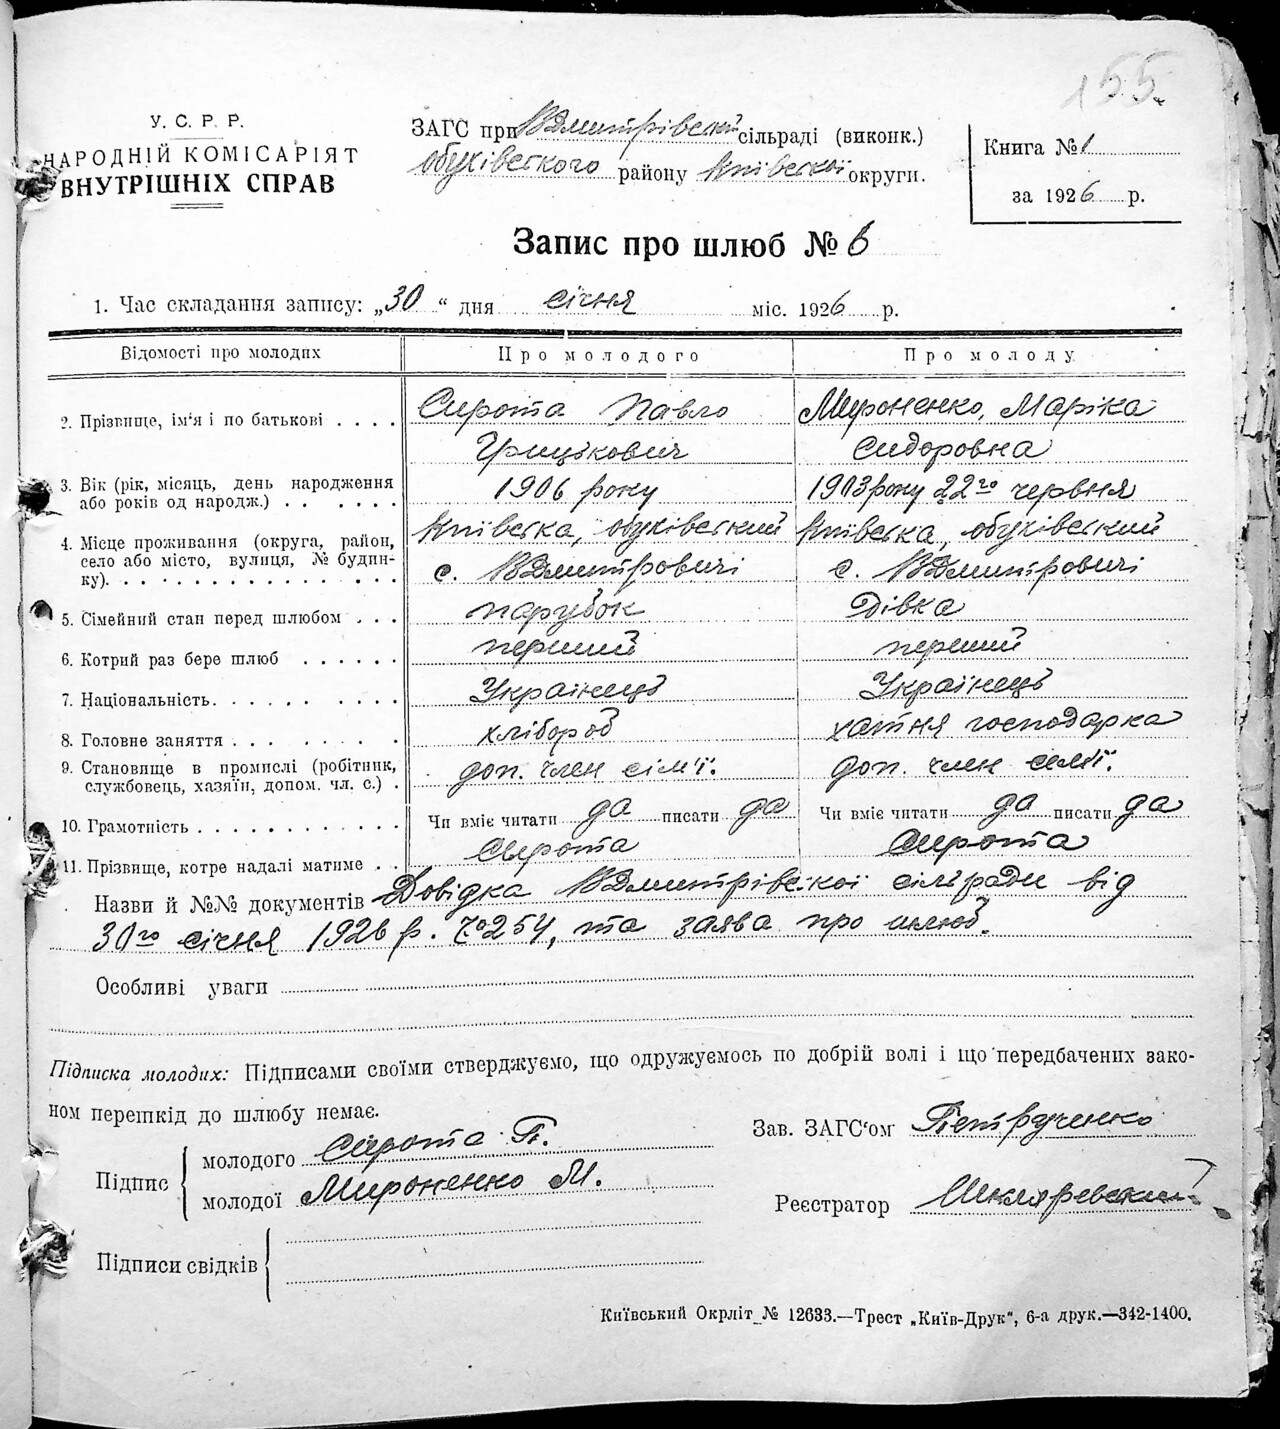 155.
У. С. Р. Р.
НАРОДНІЙ КОМІСАРІЯТ
ВНУТРІШНІХ СПРАВ
ЗАГС при ВДмитрівській сільраді (виконк.)
Обухівского району Київської округи.
Книга № 1
за 1926 р.
Запис про шлюб № 6
1. Час складання запису: „30“ дня січня міс. 1926 р.
Відомості про молодих Про молодого Про молоду
2. Прізвище, ім'я і по батькові . . . . Сирота Павло Мироненко, Маріка
Грицькович Сидоровна
3. Вік (рік, місяць, день народження 1906 року 1903 року 22го червня
або років од народж.) . . . . . .
4. Місце проживання (округа, район, Київска, обухівский Київска, обухівский
село або місто, вулиця, № будин- с. ВДмитровичі с. ВДмитровичі
ку). . . . . . . . . . . . . . .
5. Сімейний стан перед шлюбом . . . парубок Дівка
6. Котрий раз бере шлюб . . . . . . перший перший
7. Національність. . . . . . . . . . Українець Українець
8. Головне заняття . . . . . . . . хлібороб хатня господарка
9. Становище в промислі (робітник, доп. член сім'ї. доп. член семї.
службовець, хазяїн, допом. чл. с.) .
10. Грамотність . . . . . . . . . . . . Чи вміє читати да писати да Чи вміє читати да писати да
11. Прізвище, котре надалі матиме . . Сирота Сирота
Назви й №№ документів Довідка ВДмитрівської сільради від
30го січня 1926 р. № 254, та заява про шлюб.
Особливі уваги
Підписка молодих: Підписами своїми стверджуємо, що одружуємось по добрій волі і що передбачених зако-
ном перешкід до шлюбу немає.
Підпис молодого Сирота П.
молодої Мироненко М.
Зав. ЗАГС'ом Петрученко
Реєстратор Шкляревский
Підписи свідків
Київський Окрліт № 12633.—Трест „Київ-Друк“, 6-а друк.—342-1400.